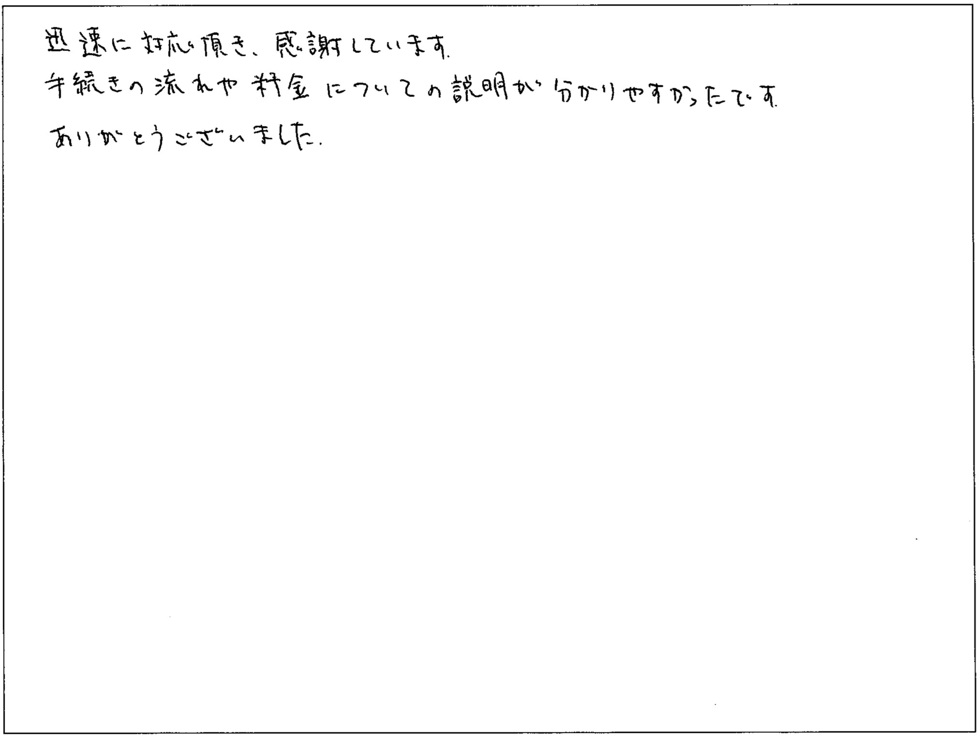 迅速に対応頂き、感謝しています.
手続きの流れや料金についての説明が分かりやすかったです.
ありがとうございました.